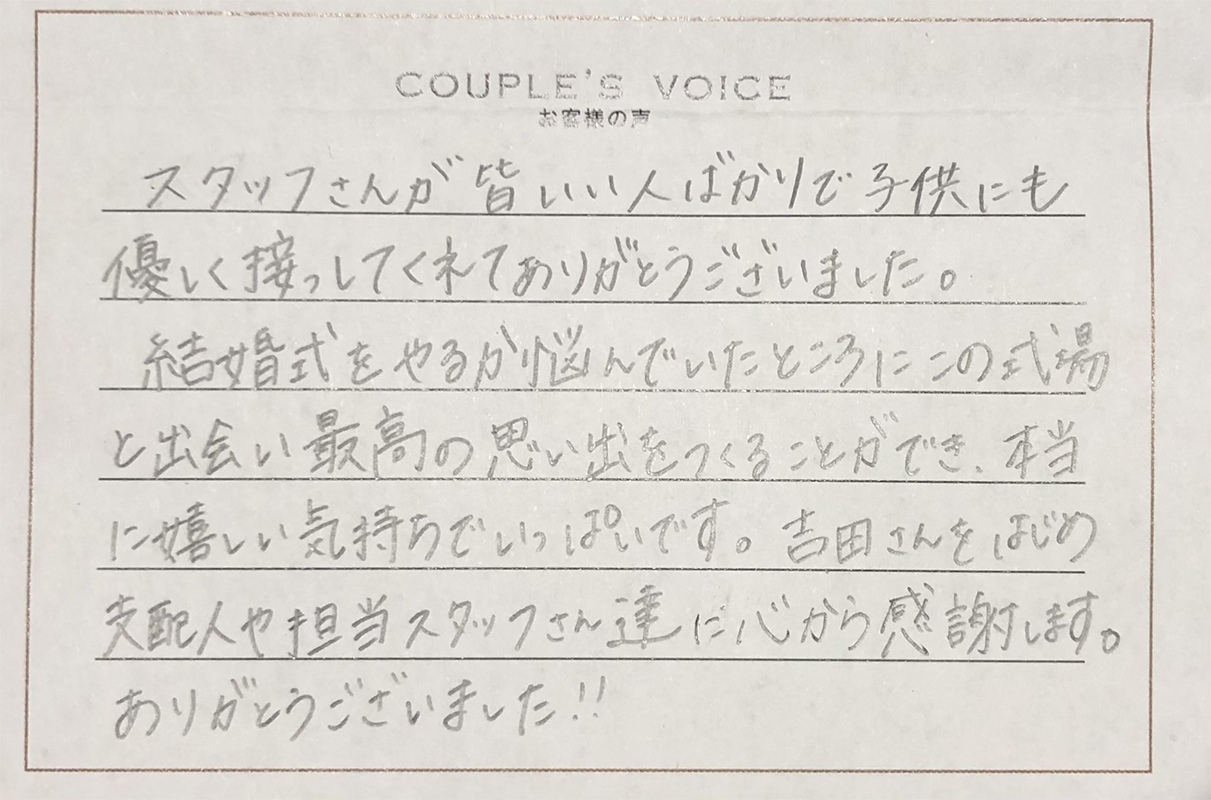 COUPLE'S VOICE
お客様の声
スタッフさんが皆いい人ばかりで子供にも
優しく接っしてくれてありがとうございました。
結婚式をやるか悩んでいたところにこの式場
と出会い最高の思い出をつくることができ、本当
に嬉しい気持ちでいっぱいです。吉田さんをはじめ
支配人や担当スタッフさん達に心から感謝します。
ありがとうございました!!